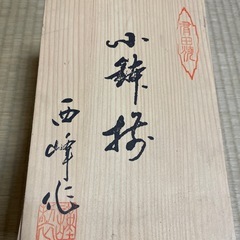 有田焼
小鉢揃
西峰作